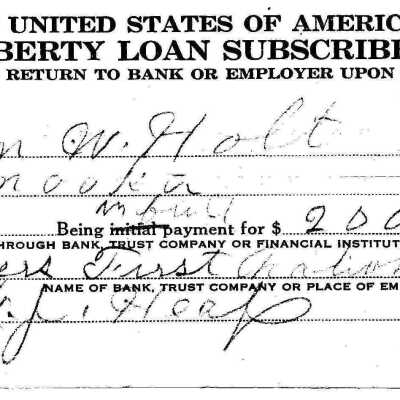 UNITED STATES OF AMERICA
BERTY LOAN SUBSCRIBE
RETURN TO BANK OR EMPLOYER UPON
W. Holt
in full
Being initial payment for $ 200
THROUGH BANK, TRUST COMPANY OR FINANCIAL INSTITUT
ers First Nation
NAME OF BANK, TRUST COMPANY OR PLACE OF EM
Heap